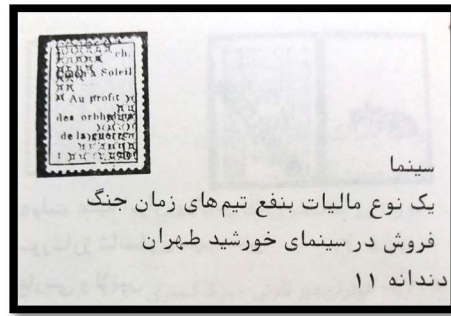 ch.
à Soleil
Au profit
des orphelins
de la guerre
1
سینما
یک نوع مالیات بنفع تیم‌های زمان جنگ
فروش در سینمای خورشید طهران
دندانه ۱۱